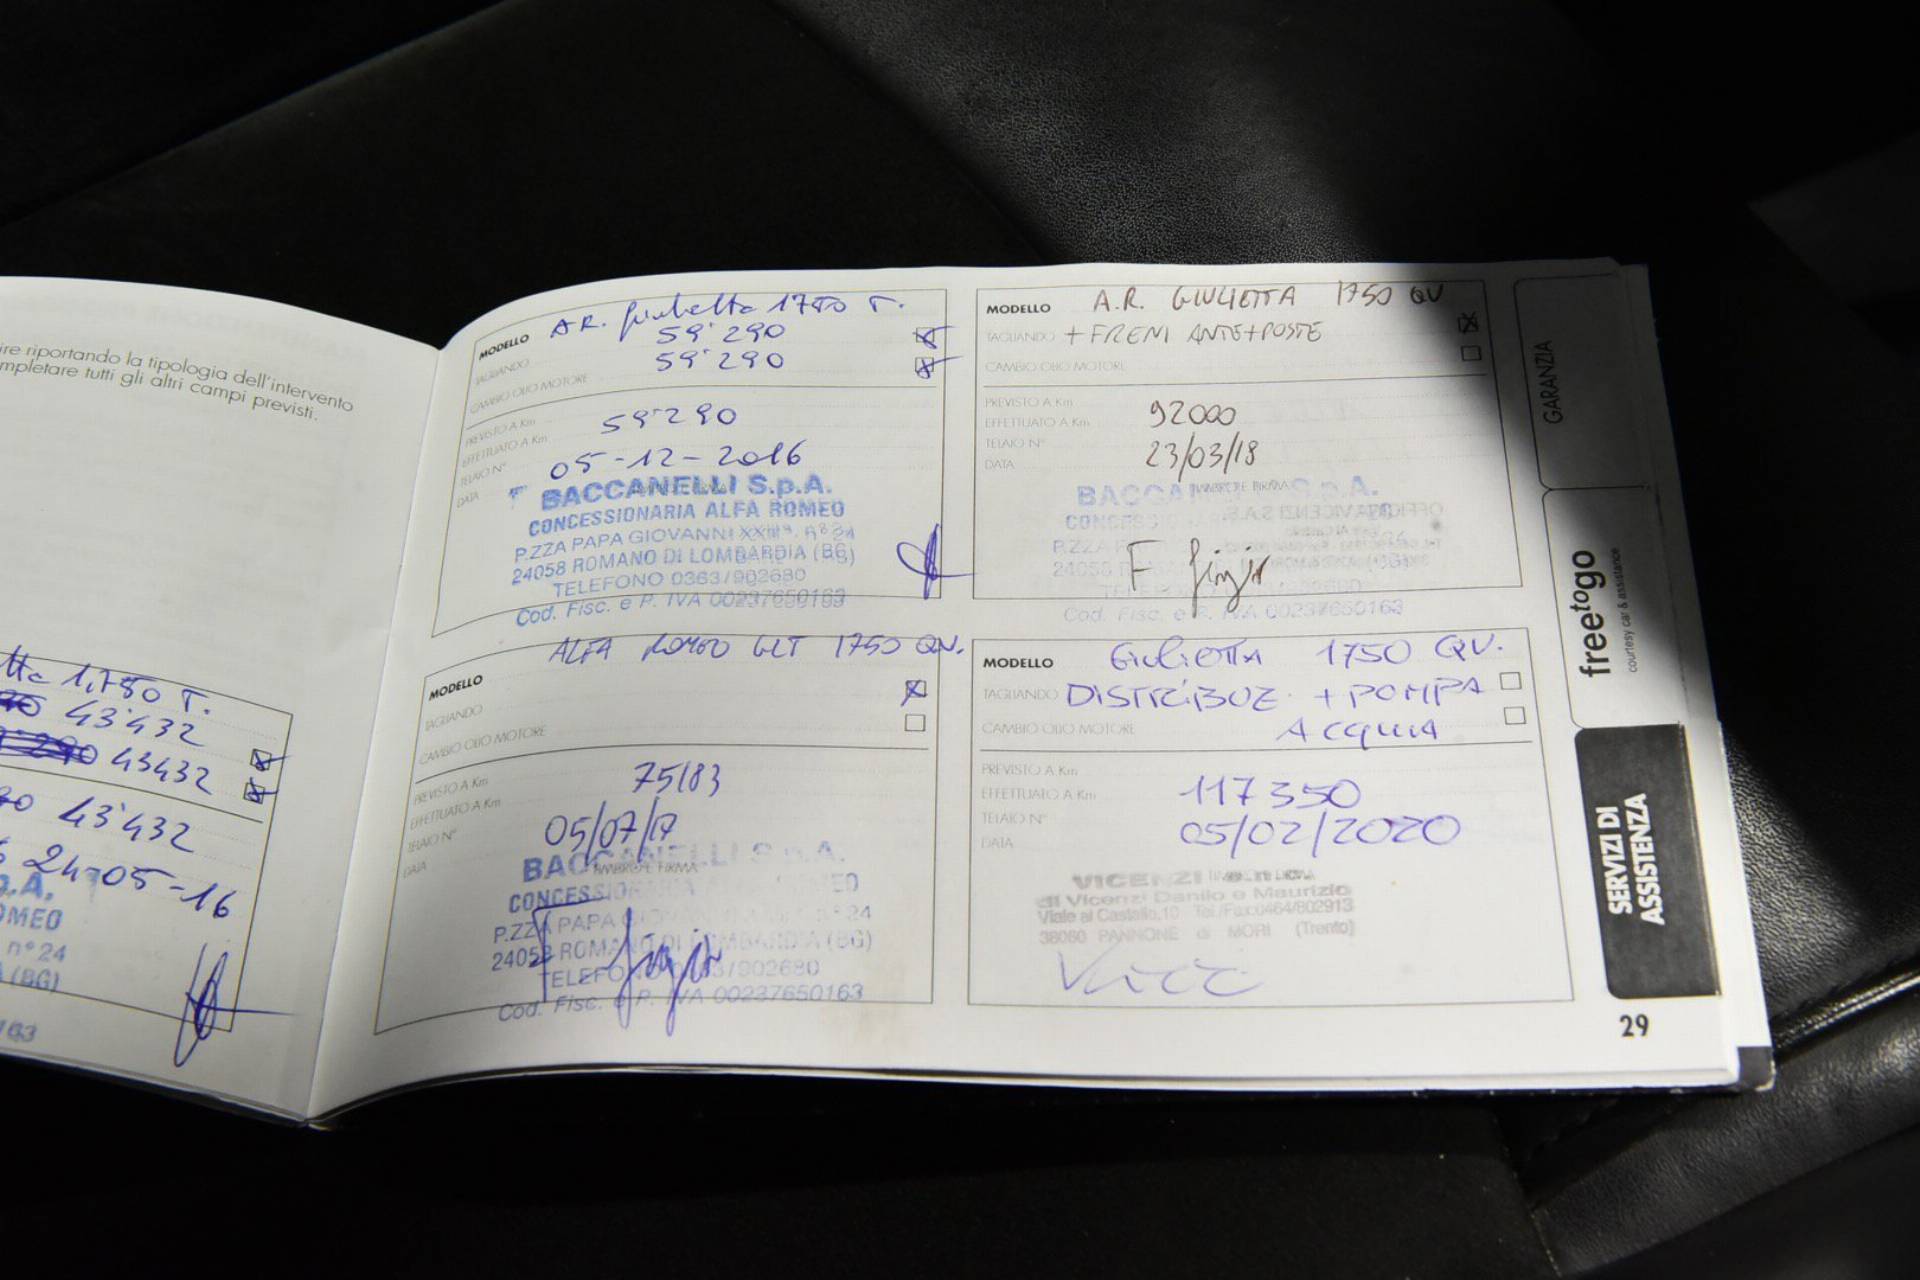 ire riportando la tipologia dell'intervento
mpletare tutti gli altri campi previsti.
tta 1,750 T.
43'432
43432
43'432
24-05-16
.A.
OMEO
n° 24
(BG)
163
MODELLO A.R. Giulietta 1750 T.
TAGLIANDO 59'290
CAMBIO OLIO MOTORE 59'290
PREVISTO A Km
EFFETTUATO A Km 59'290
TELAIO N°
DATA 05-12-2016
BACCANELLI S.p.A.
CONCESSIONARIA ALFA ROMEO
P.ZZA PAPA GIOVANNI XXIII°, n° 24
24058 ROMANO DI LOMBARDIA (BG)
TELEFONO 0363/902680
Cod. Fisc. e P. IVA 00237650163
MODELLO A.R. GIULIETTA 1750 QV
TAGLIANDO + FRENI ANT+POST
CAMBIO OLIO MOTORE
PREVISTO A Km
EFFETTUATO A Km 92000
TELAIO N°
DATA 23/03/18
TIMBRO E FIRMA
BACCA S.p.A.
Cod. Fisc. e P. IVA 00237650163
MODELLO ALFA ROMEO GLT 1750 QV.
TAGLIANDO
CAMBIO OLIO MOTORE
PREVISTO A Km
EFFETTUATO A Km 75183
TELAIO N°
DATA 05/07/17
TIMBRO E FIRMA
BACCANELLI S.p.A.
CONCESSIONARIA ALFA ROMEO
P.ZZA PAPA GIOVANNI n° 24
24058 ROMANO DI LOMBARDIA (BG)
TELEFONO 0363/902680
Cod. Fisc. e P. IVA 00237650163
MODELLO GIULIETTA 1750 QV.
TAGLIANDO DISTRIBUZ. + POMPA
CAMBIO OLIO MOTORE ACQUA
PREVISTO A Km
EFFETTUATO A Km 117350
TELAIO N°
DATA 05/02/2020
TIMBRO E FIRMA
VICENZI
di Vicenzi Danilo e Maurizio
Viale al Castello,10 Tel./Fax:0464/802913
38060 PANNONE di MORI (Trento)
GARANZIA
freetogo
courtesy car & assistance
SERVIZI DI
ASSISTENZA
29